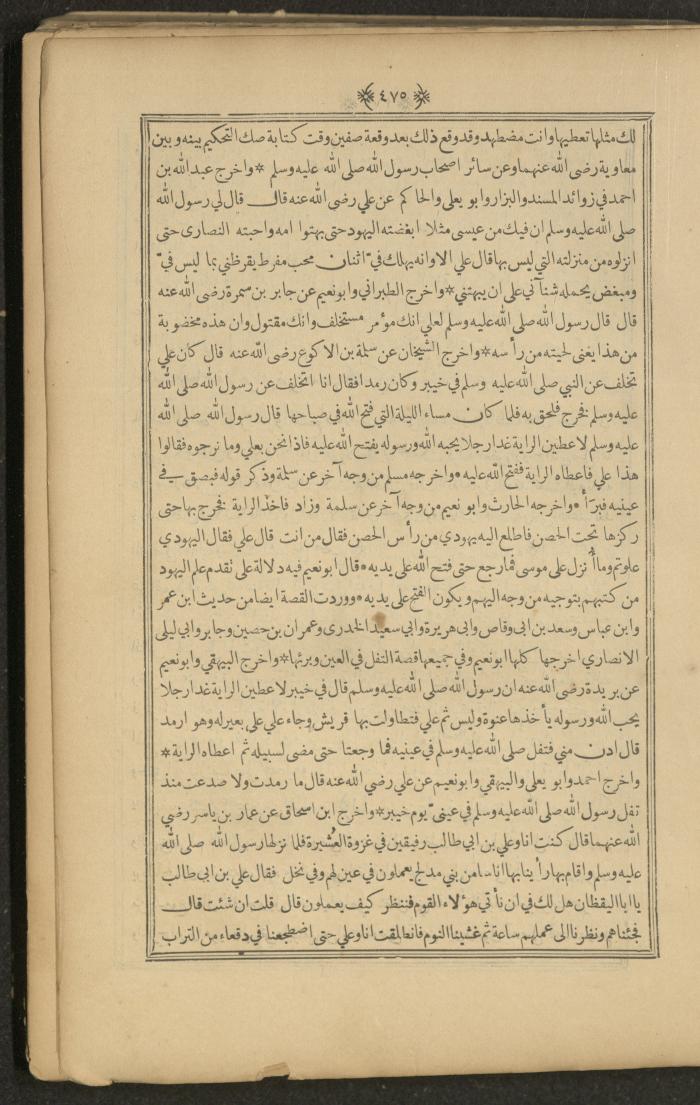 ٤٧٥
لك مثلها تعطيها وانت مضطهد وقد وقع ذلك بعد وقعة صفين وقت كتابة صك التحكيم بينه وبين
معاوية رضى الله عنهما وعن سائر اصحاب رسول الله صلى الله عليه وسلم * واخرج عبد الله بن
احمد في زوائد المسند والبزار وابو يعلى والحاكم عن علي رضى الله عنه قال قال لي رسول الله
صلى الله عليه وسلم ان فيك من عيسى مثلا ابغضته اليهود حتى بهتوا امه واحبته النصارى حتى
انزلوه من منزلته التي ليس بها قال علي الا وانه يهلك فيّ اثنان محب مفرط يقرظني بما ليس فيّ
ومبغض يحمله شنآ ني على ان يبهتني * واخرج الطبراني وابو نعيم عن جابر بن سمرة رضى الله عنه
قال قال رسول الله صلى الله عليه وسلم لعلي انك مؤمر مستخلف وانك مقتول وان هذه مخضوبة
من هذا يعنى لحيته من رأسه * واخرج الشيخان عن سلمة بن الاكوع رضى الله عنه قال كان علي
تخلف عن النبي صلى الله عليه وسلم في خيبر وكان رمدا فقال انا اتخلف عن رسول الله صلى الله
عليه وسلم فخرج فلحق به فلما كان مساء الليلة التي فتح الله في صباحها قال رسول الله صلى الله
عليه وسلم لاعطين الراية غدا رجلا يحبه الله ورسوله يفتح الله عليه فاذا نحن بعلي وما نرجوه فقالوا
هذا علي فاعطاه الراية ففتح الله عليه * واخرجه مسلم من وجه آخر عن سلمة وذكر قوله فبصق في
عينيه فبرَأ * واخرجه الحارث وابو نعيم من وجه آخر عن سلمة وزاد فاخذ الراية فخرج بها حتى
ركزها تحت الحصن فاطلع اليه يهودي من رأس الحصن فقال من انت قال علي فقال اليهودي
علوتم وما أُنزل على موسى فما رجع حتى فتح الله على يديه * قال ابو نعيم فيه دلالة على تقدم علم اليهود
من كتبهم بتوجيه من وجه اليهم ويكون الفتح على يديه * ووردت القصة ايضا من حديث ابن عمر
وابن عباس وسعد بن ابى وقاص وابى هريرة وابي سعيد الخدرى وعمران بن حصين وجابر وابي ليلى
الانصاري اخرجها كلها ابو نعيم وفي جميعها قصة التفل في العين وبرئها * واخرج البيهقي وابو نعيم
عن بريدة رضى الله عنه ان رسول الله صلى الله عليه وسلم قال في خيبر لاعطين الراية غدا رجلا
يحب الله ورسوله يأخذها عنوة وليس ثم علي فتطاولت بها قريش وجاء علي على بعير له وهو ارمد
قال ادن مني فتفل صلى الله عليه وسلم في عينيه فما وجعتا حتى مضى لسبيله ثم اعطاه الراية *
واخرج احمد وابو يعلى والبيهقي وابو نعيم عن علي رضي الله عنه قال ما رمدت ولا صدعت منذ
تفل رسول الله صلى الله عليه وسلم في عينيّ يوم خيبر * واخرج ابن اسحاق عن عمار بن ياسر رضي
الله عنهما قال كنت انا وعلي بن ابي طالب رفيقين في غزوة العُشيرة فلما نزلها رسول الله صلى الله
عليه وسلم واقام بها رأينا بها اناسا من بني مدلج يعملون في عين لهم وفي نخل فقال علي بن ابى طالب
يا ابا اليقظان هل لك في ان نأتي هؤلاء القوم فننظر كيف يعملون قال قلت ان شئت قال
فجئناهم ونظرنا الى عملهم ساعة ثم غشينا النوم فانطلقت انا وعلي حتى اضطجعنا في دقعاء من التراب